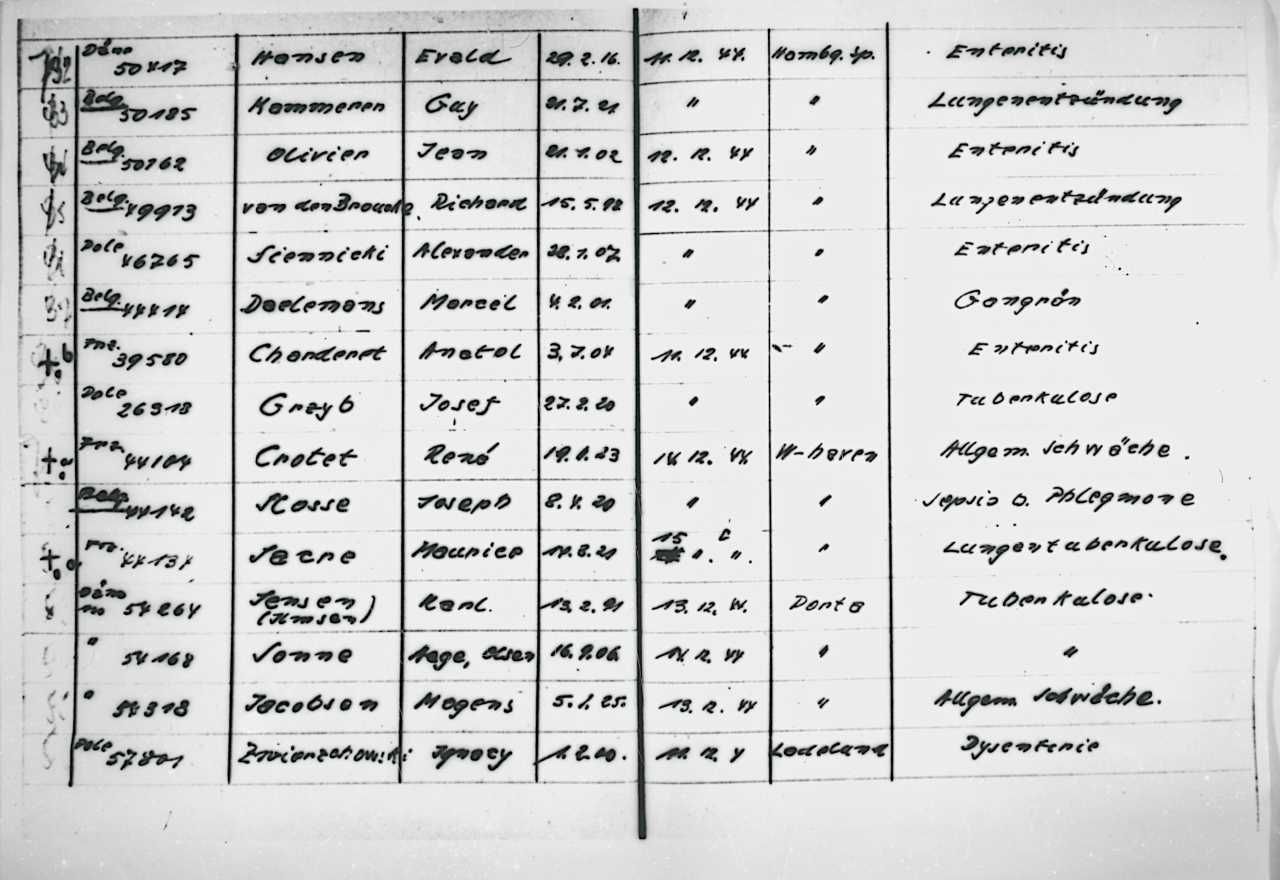 Däne 50417 Hansen Evald 29.2.16. 11.12.44. Hambg. Sp. Enteritis
Belg. 50185 Kammeren Guy 21.7.21 " " Lungenentzündung
Belg. 50162 Olivier Jean 21.1.02 12.12.44 " Enteritis
Belg. 49913 van den Broucke Richard 15.5.92 12.12.44 " Lungenentzündung
Pole 46765 Siennicki Alexander 28.1.07 " " Enteritis
Belg. 44414 Daelemans Marcel 4.2.01. " " Gangrän
Frz. 39580 Charderet Anatol 3.7.04 11.12.44 " Enteritis
Pole 26918 Grzyb Josef 27.2.20 " " Tuberkulose
Frz. 44104 Crotet René 23 14.12.44 W-haven Allgem. Schwäche.
Belg. 44142 Slosse Joseph 8.4.20 " " Sepsis b. Phlegmone
Frz. 44134 Maurice 14.8.21 15 " . " . " Lungentuberkulose.
Däne 54264 Jensen Karl. 13.2.91 13.12.44. Tuberkulose.
" 54168 Sonne Aage, Olsen 16.9.06. 14.12.44 " "
" 54318 Jacobson Mogens 5.1.25. 13.12.44 " Allgem. Schwäche.
Pole Ignacy 11.12.4 Ladelund Dysenterie